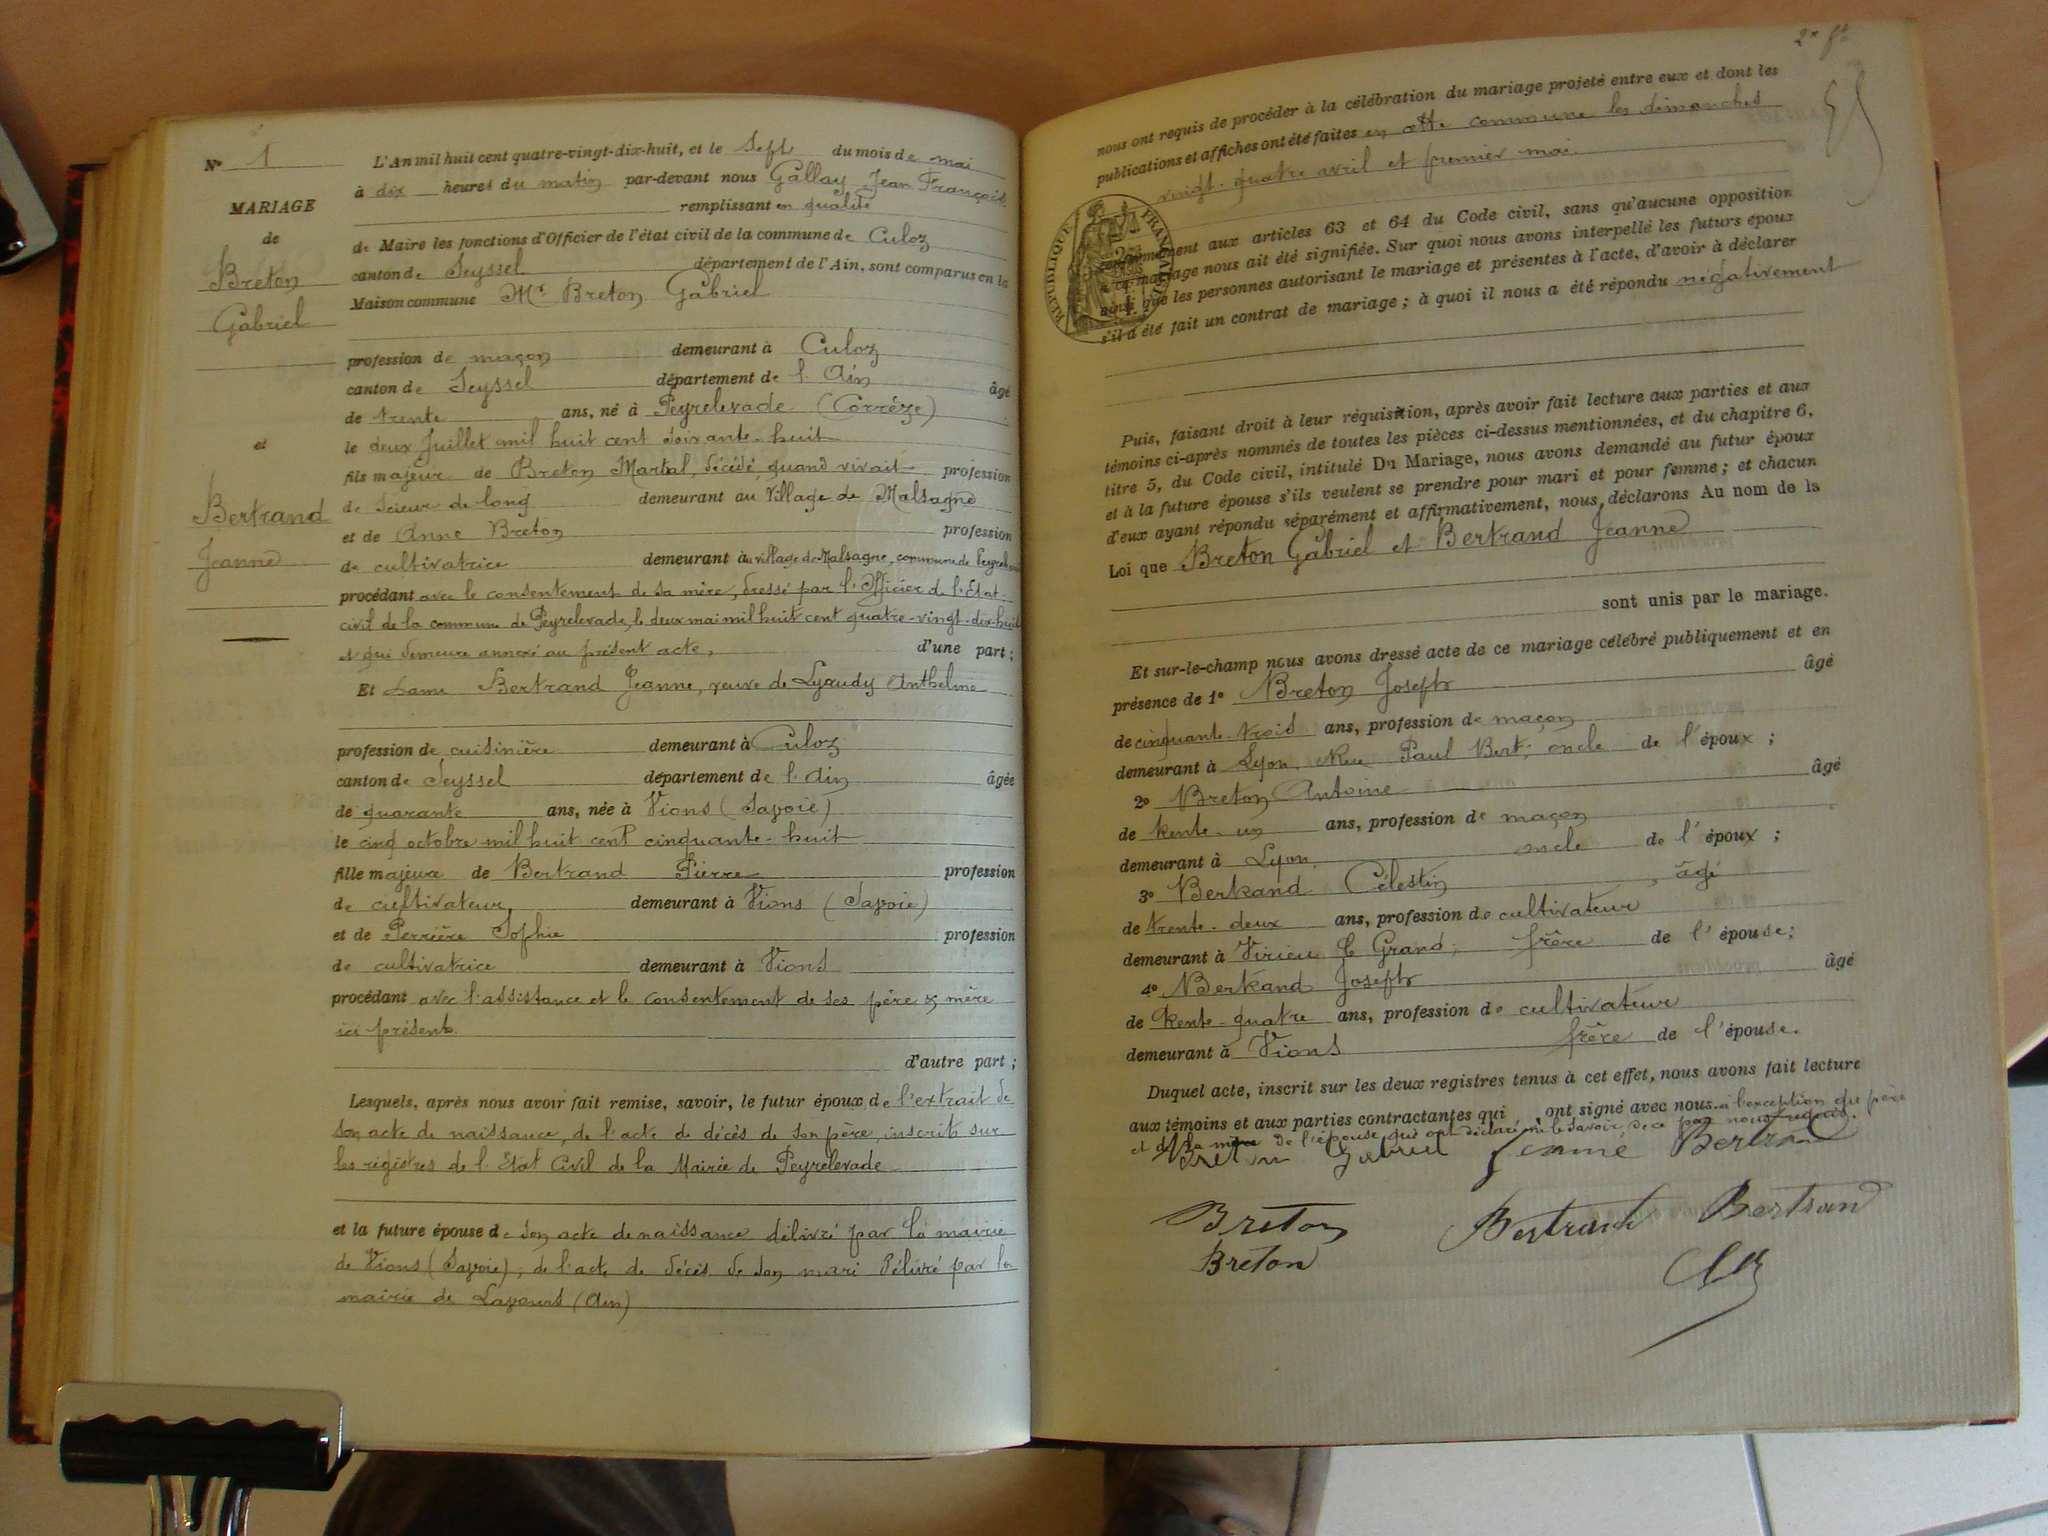 N° 1
MARIAGE
de
Breton
Gabriel
et
Bertrand
Jeanne
L'An mil huit cent quatre-vingt-dix-huit, et le sept du mois de mai
à dix heures du matin par-devant nous Gallay Jean François
remplissant en qualité
de Maire les fonctions d'Officier de l'état civil de la commune de Culoz
canton de Seyssel département de l'Ain, sont comparus en la
Maison commune Mr Breton Gabriel
profession de maçon demeurant à Culoz
canton de Seyssel département de l'Ain âgé
de trente ans, né à Peyrelevade (Corrèze)
le deux Juillet mil huit cent soixante-huit
fils majeur de Breton Martial, décédé, quand vivait profession
de scieur de long demeurant au village de Malsagne
et de Anne Breton profession
de cultivatrice demeurant au village de Malsagne, commune de Peyrelevade
procédant avec le consentement de sa mère, dressé par l'Officier de l'Etat
civil de la commune de Peyrelevade, le deux mai mil huit cent quatre-vingt-dix-huit
et qui demeure annexé au présent acte, d'une part;
Et Dame Bertrand Jeanne, veuve de Lyaudy Anthelme
profession de cuisinière demeurant à Culoz
canton de Seyssel département de l'Ain âgée
de quarante ans, née à Vions (Savoie)
le cinq octobre mil huit cent cinquante-huit
fille majeure de Bertrand Pierre profession
de cultivateur, demeurant à Vions (Savoie)
et de Perrière Sophie profession
de cultivatrice demeurant à Vions
procédant avec l'assistance et le consentement de ses père & mère
ici présents.
d'autre part;
Lesquels, après nous avoir fait remise, savoir, le futur époux, de l'extrait de
son acte de naissance, de l'acte de décès de son père, inscrits sur
les registres de l'Etat Civil de la Mairie de Peyrelevade
et la future épouse de son acte de naissance délivré par la mairie
de Vions (Savoie), de l'acte de décès de son mari délivré par la
mairie de Lavours (Ain)
2e ft
nous ont requis de procéder à la célébration du mariage projeté entre eux et dont les
publications et affiches ont été faites en cette commune les dimanches
vingt-quatre avril et premier mai.
RÉPUBLIQUE FRANÇAISE
conformément aux articles 63 et 64 du Code civil, sans qu'aucune opposition
à ce mariage nous ait été signifiée. Sur quoi nous avons interpellé les futurs époux
ainsi que les personnes autorisant le mariage et présentes à l'acte, d'avoir à déclarer
s'il a été fait un contrat de mariage; à quoi il nous a été répondu négativement
Puis, faisant droit à leur réquisition, après avoir fait lecture aux parties et aux
témoins ci-après nommés de toutes les pièces ci-dessus mentionnées, et du chapitre 6,
titre 5, du Code civil, intitulé Du Mariage, nous avons demandé au futur époux
et à la future épouse s'ils veulent se prendre pour mari et pour femme; et chacun
d'eux ayant répondu séparément et affirmativement, nous déclarons Au nom de la
Loi que Breton Gabriel et Bertrand Jeanne
sont unis par le mariage.
Et sur-le-champ nous avons dressé acte de ce mariage célébré publiquement et en
présence de 1° Breton Joseph âgé
de cinquante-trois ans, profession de maçon
demeurant à Lyon, Rue Paul Bert, oncle de l'époux;
2° Breton Antoine âgé
de trente-un ans, profession de maçon
demeurant à Lyon, oncle de l'époux;
3° Bertrand Célestin, âgé
de trente-deux ans, profession de cultivateur
demeurant à Virieu le Grand, frère de l'épouse;
4° Bertrand Joseph âgé
de trente-quatre ans, profession de cultivateur
demeurant à Vions frère de l'épouse.
Duquel acte, inscrit sur les deux registres tenus à cet effet, nous avons fait lecture
aux témoins et aux parties contractantes qui ont signé avec nous. à l'exception du père
et de la mère de l'épouse qui ont déclaré ne le savoir, de ce par nous requis.
Breton Gabriel Jeanne Bertrand
Breton Bertrand Bertrand
Breton